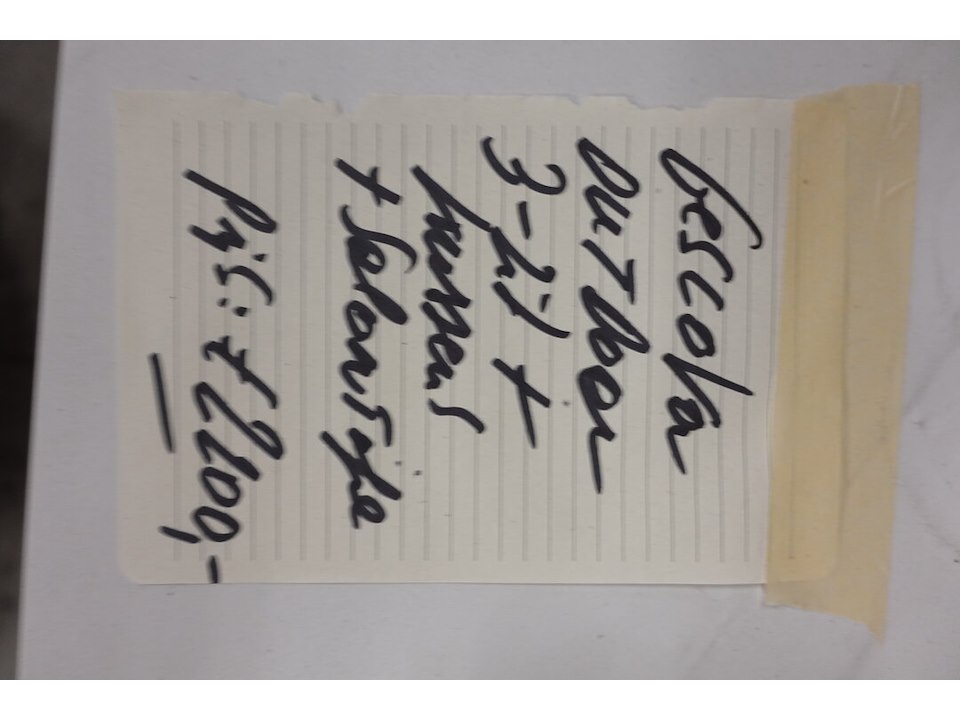 Gescova
outdoor
3-zit +
kussens
+ Salontafel
Prijs: €2200,-